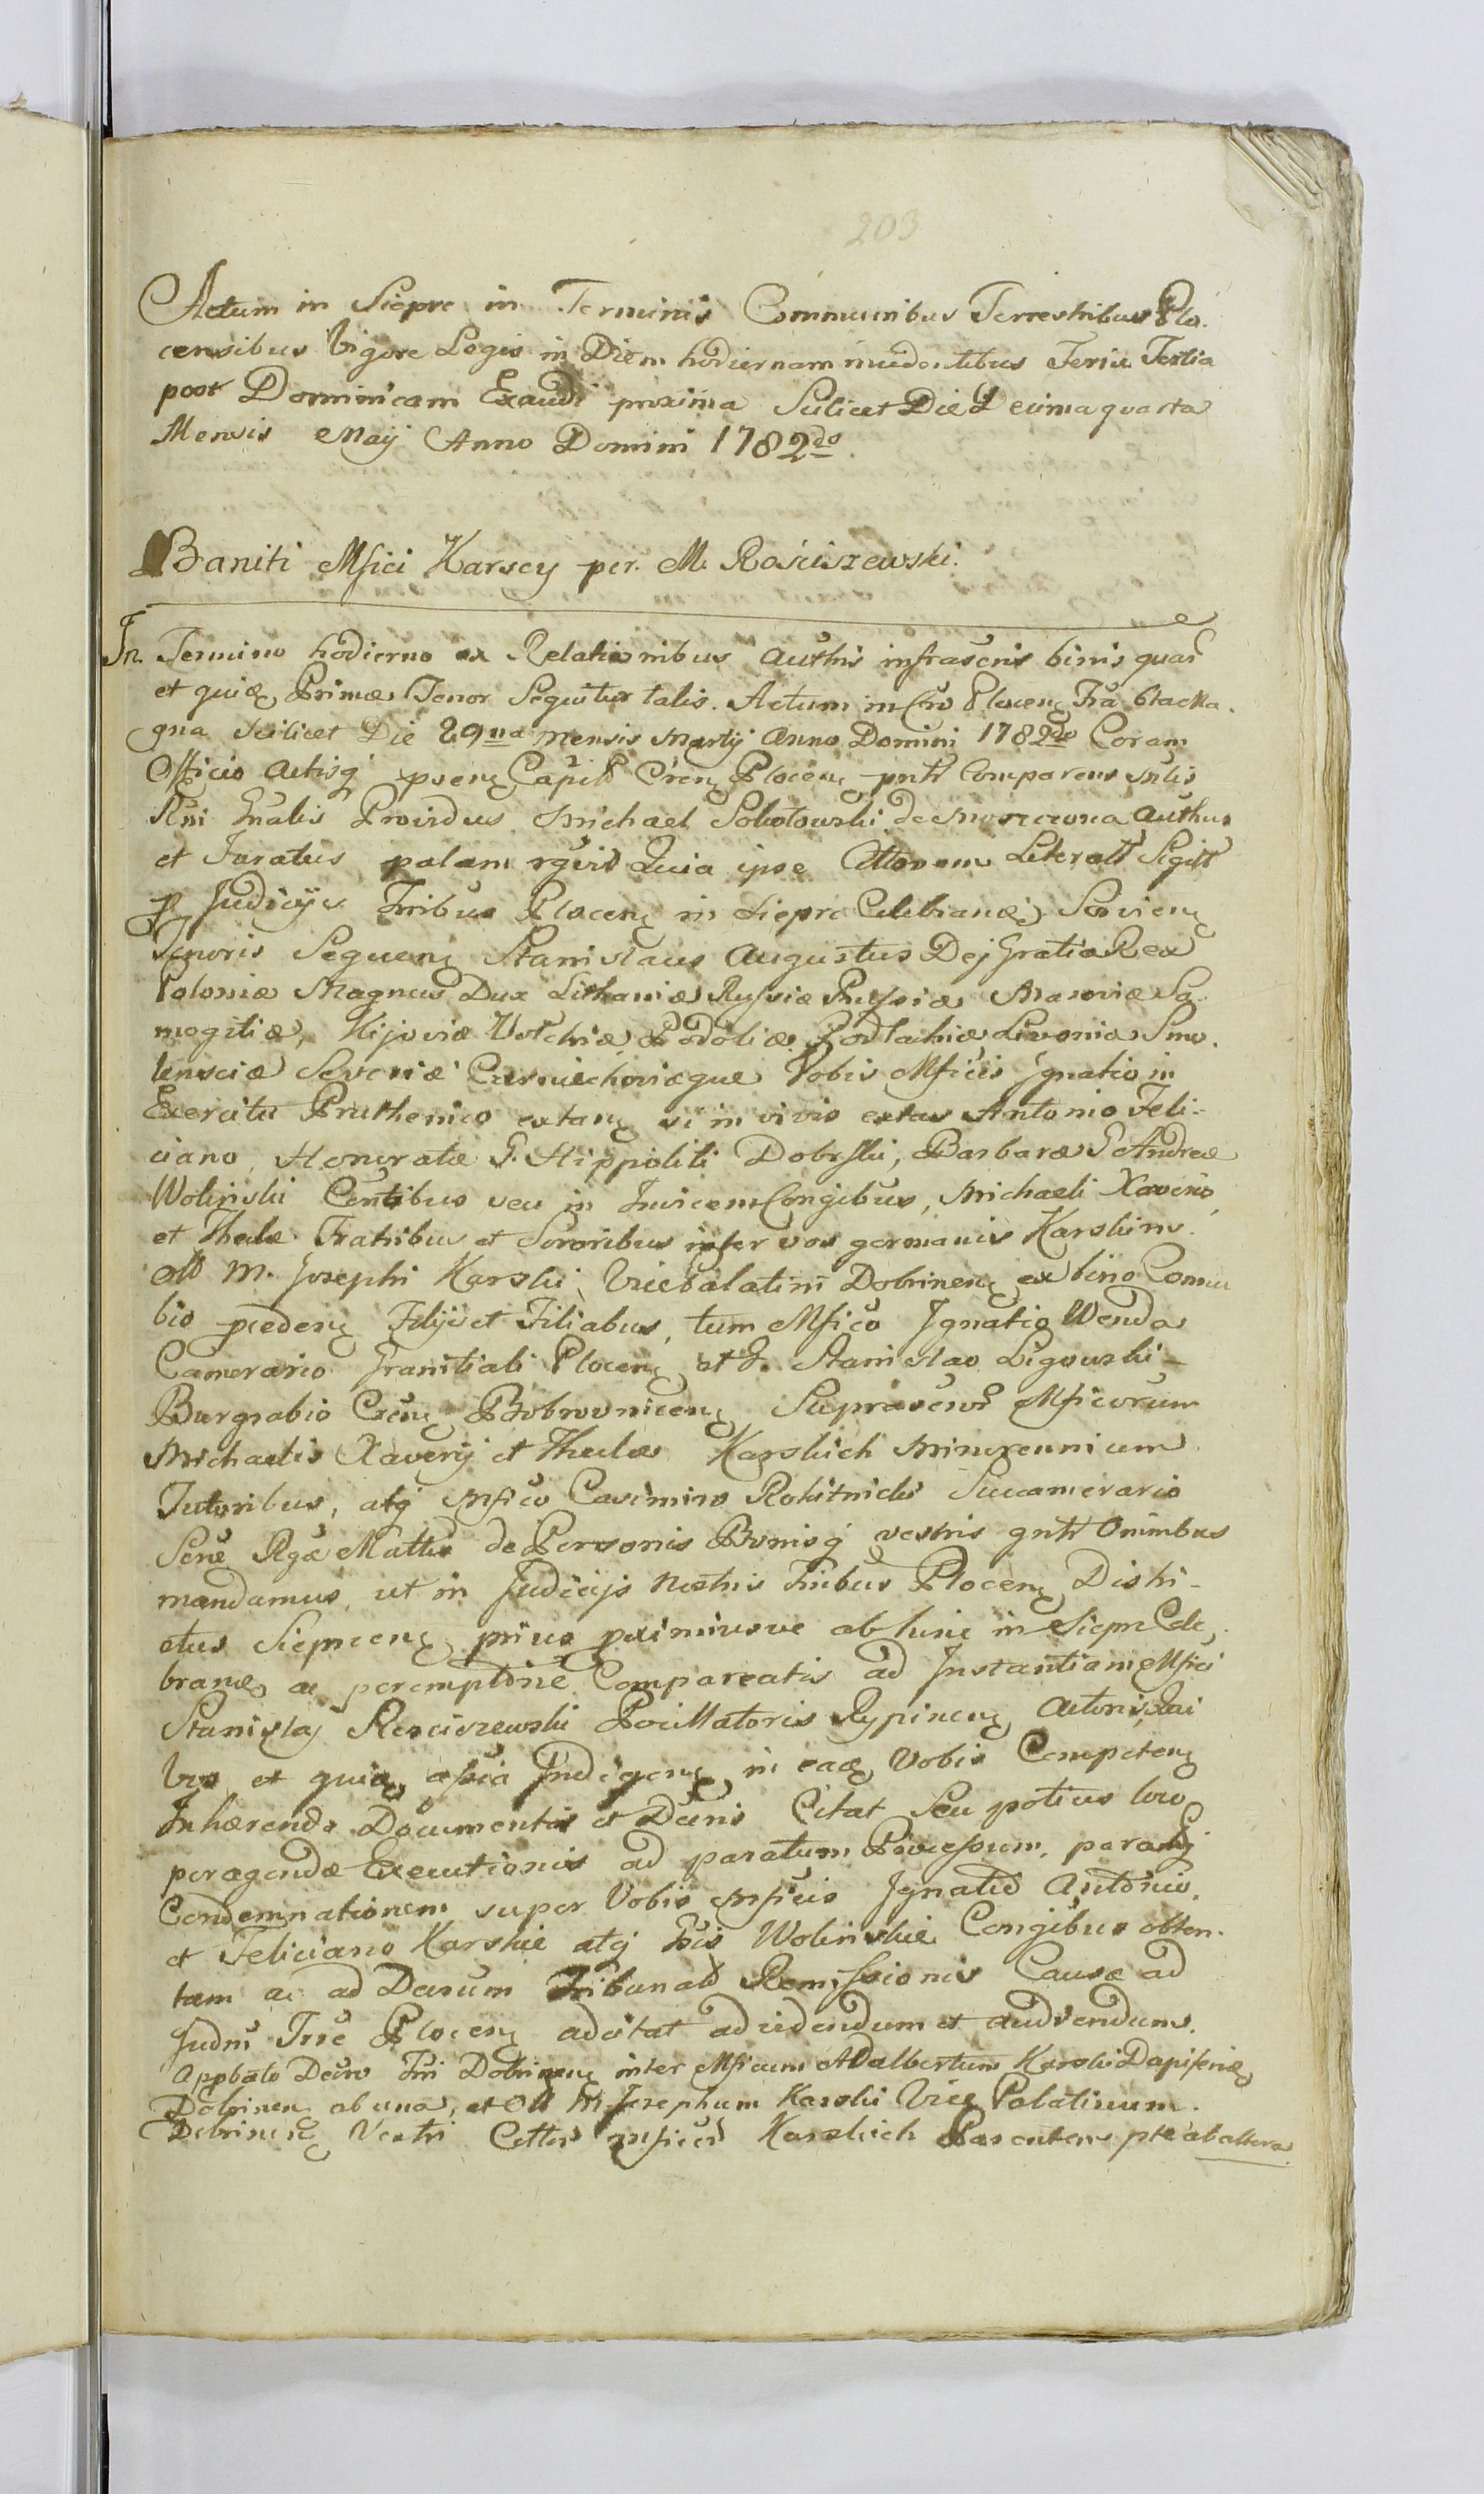 203
Actum in Siepre in Terminis Communibus Terrestribus Plo.
censibus Vigore Legis in Diem hodiernam incidentibus Feria Tertia
post Dominicam Exaudi proxima Scilicet Die Decima quarta
Mensis Maij Anno Domini 1782do.
Baniti Mfici Karscy per M. Rościszewski.
In Termino hodierno ex Relationibus authis infrascris binis quar
et quidę Primæ Tenor Sequitur talis. Actum in Cro Plocenę Fra 6ta Ma.
gna scilicet Die 29na mensis Martij Anno Domini 1782do Coram
Officio actisq prenę Capit Crenę Plocenę pntr Comparens Mlis
Rni Gnalis Providus Michael Sobotowski de authus
et Juratus palam rgvit Quia ipse Litteratt Sigitt
p Judicijs Trribus Plocenę in Siepre Celebranę Servienę
Tenoris Sequenę Stanislaus Augustus Dej Gratia Rex
Poloniæ Magnus Dux Lithaniæ Russiæ Prussiæ Masoviæ Sa
mogitiæ, Kijoviæ Volchiæ Podoliæ Podlachiæ Livoniæ Smo.
lensciæ Severiæ Czerniechoviæque Vobis Mficis Ignatio in
Exercitu Pruthenico extanę si in vivis extas Antonio Feli-
ciano, Honoratæ G. Hippoliti Dobrski, Barbaræ G Andreæ
Wolinski Centibus seu in Invicem Congibus, Michaeli Xaverio,
et Theclæ Fratribus et Sororibus inter vos germanis Karskim.
olb M. Josephi Karski, Vicepalatini Dobrinenę ex bino Connu
bio pcedenę Filijs et Filiabus, tum Mfico Ignatio Wenda
Camerario Granitiali Plocenę et G. Stanislao Ligowski -
Burgrabio Crenę Bobrovnicenę Suprascris Mficorum
Michaelis Xaverij et Theclæ Karskich Minorennium
Tutoribus, atq Mfico Casimiro Rokitnicki Succamerario
Sere Rgæ Mattis de Personis Bonisq vestris gntr Omnibus
mandamus, ut in Judicijs nostris Trribus Plocenę Distri-
ctus Siepncenę prius proximiusve ab hinc in Siepre Cele,
branę ac peremptorie Compareatis ad Instantiam Mfici
Stanislaj Rosciszewski Pocillatoris Rypinenę Actoris Qui
Vos et quidę Indigenę in eadę Vobis Competenę
Inhærendo Documentis et Decris Citat Seu potius loco
peragendæ Executionis ad paratum Processum, paratąj
Condemnationem super Vobis Mficis Ignatio Antonio,
et Feliciano Karskie atq Wolinskie Congibus obten.
tam ac ad Decrum Tribunald Remissionis Causæ ad
Judm Trre Plocenę adcitat ad videndum et audiendum.
Appbato Decro Trri Dobrinenę inter Mficum Adalbertum Karski Dapiferidę
Dobrinen ab una, et Olb M. Josephum Karski Vice Palatinum.
Dobrinenę Vestri Mficor Karskich Parentem pte ab altera